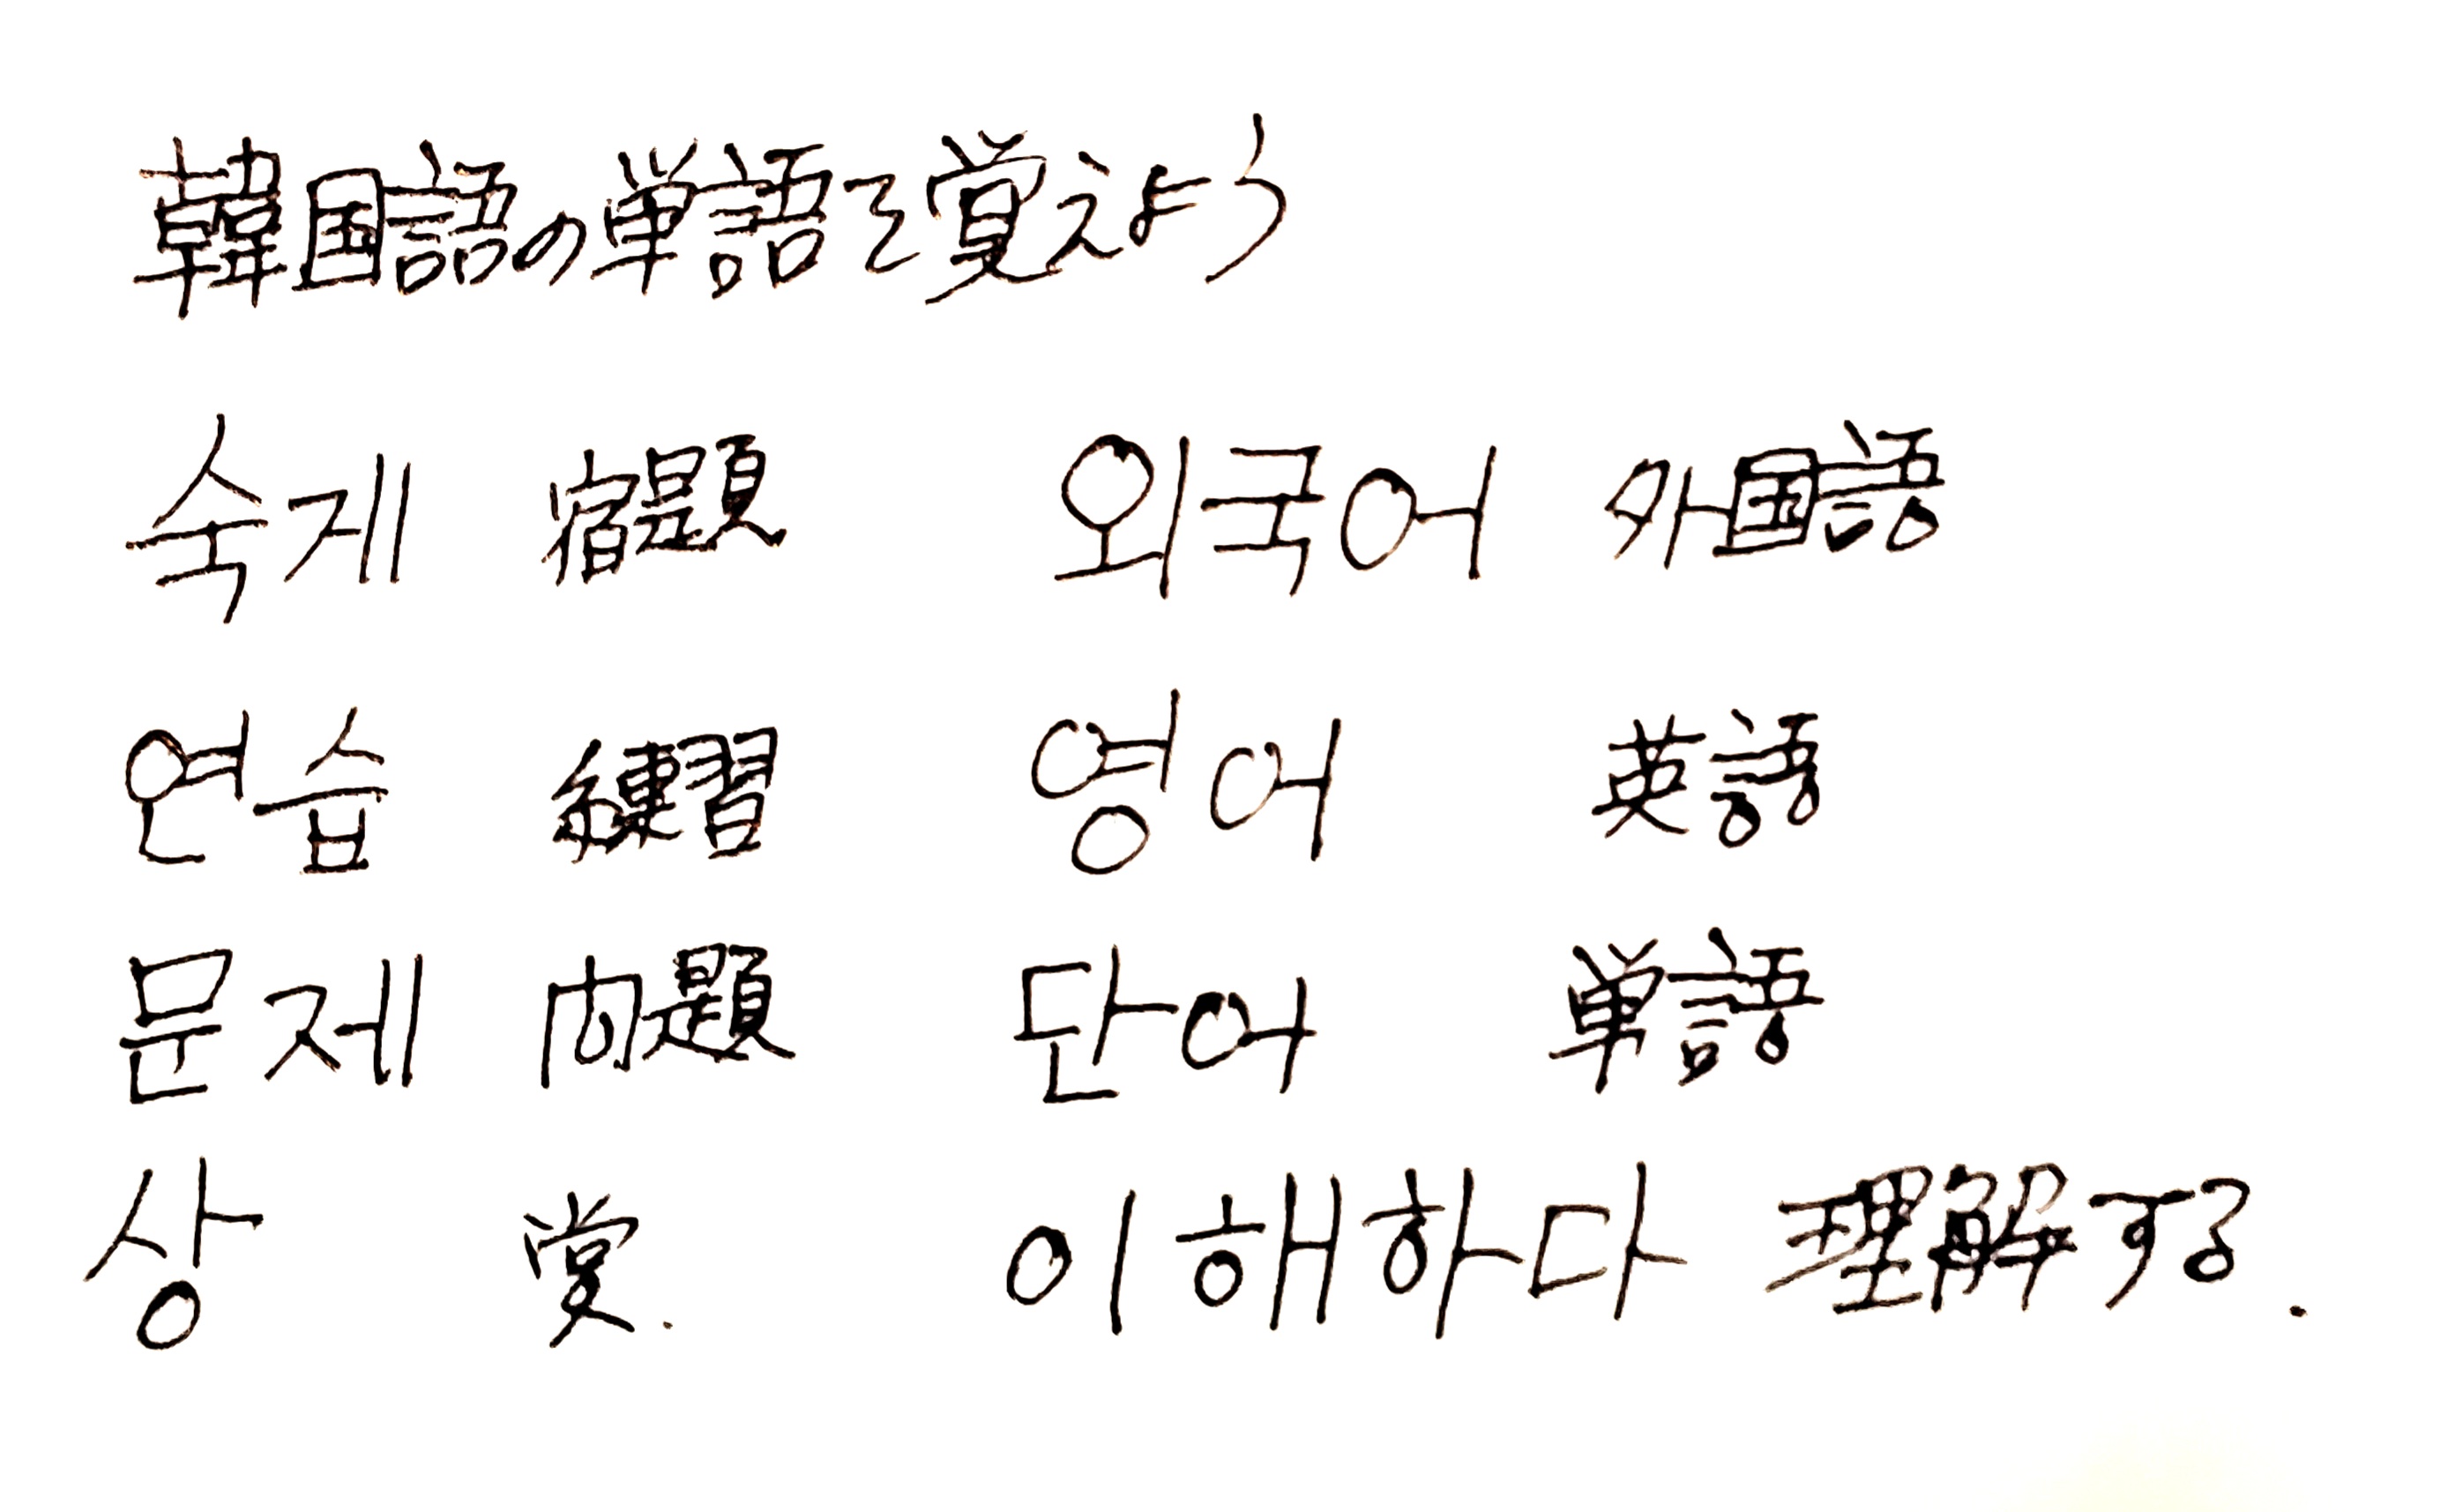 韓国語の単語を覚えよう
숙게 宿題 외국어 外国語
연습 練習 영어 英語
문제 問題 단어 単語
상 賞. 이해하다 理解する.